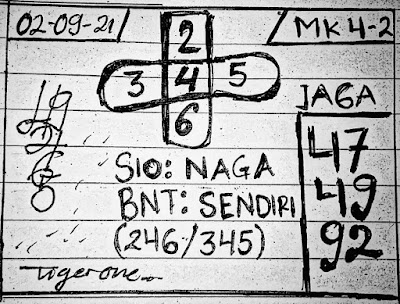 02-09-21/
/MK 4-2
2
3 4 5
6
JAGA
47
49
92
SIO: NAGA
BNT: SENDIRI
(246/345)
Togerone